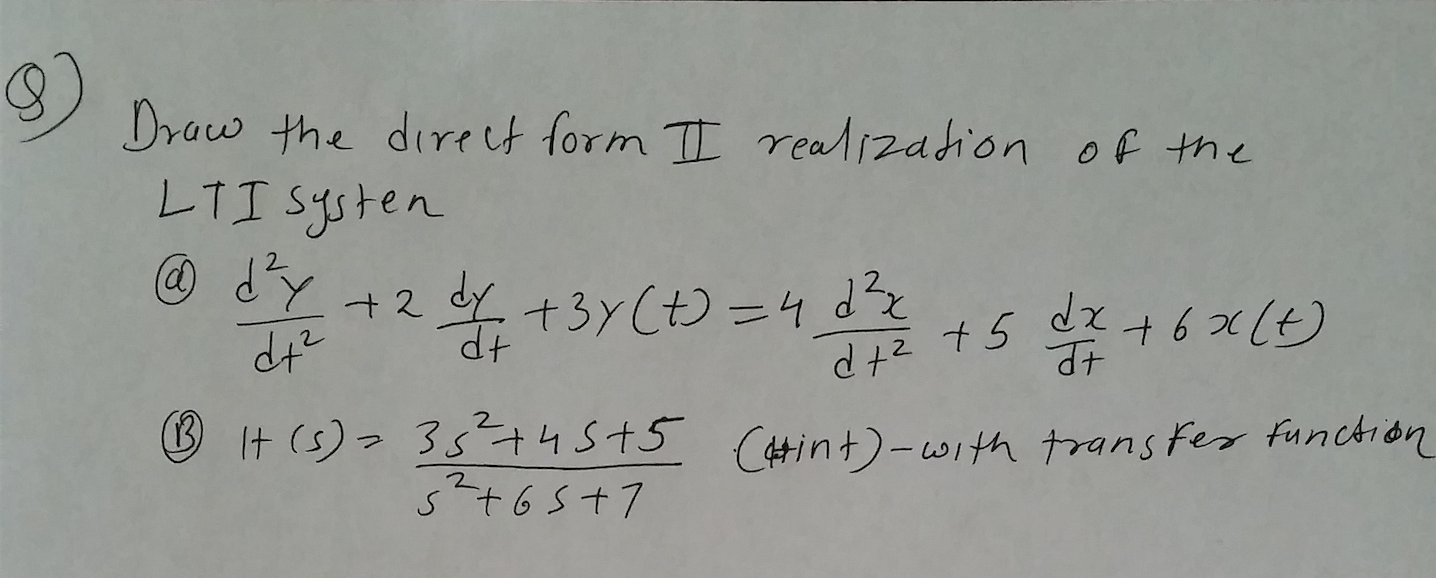 Q) Draw the direct form II realization of the
LTI systen
ⓐ d²y/dt² + 2 dy/dt + 3y(t) = 4 d²x/dt² + 5 dx/dt + 6x(t)
Ⓑ H(s) = 3s²+4s+5/s²+6s+7 (Hint)-with transfer function